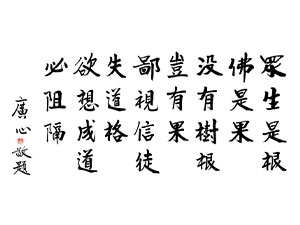 眾生是根
佛是果
没有樹根
豈有果
鄙視信徒
失道格
欲想成道
必阻隔
廣心敬題